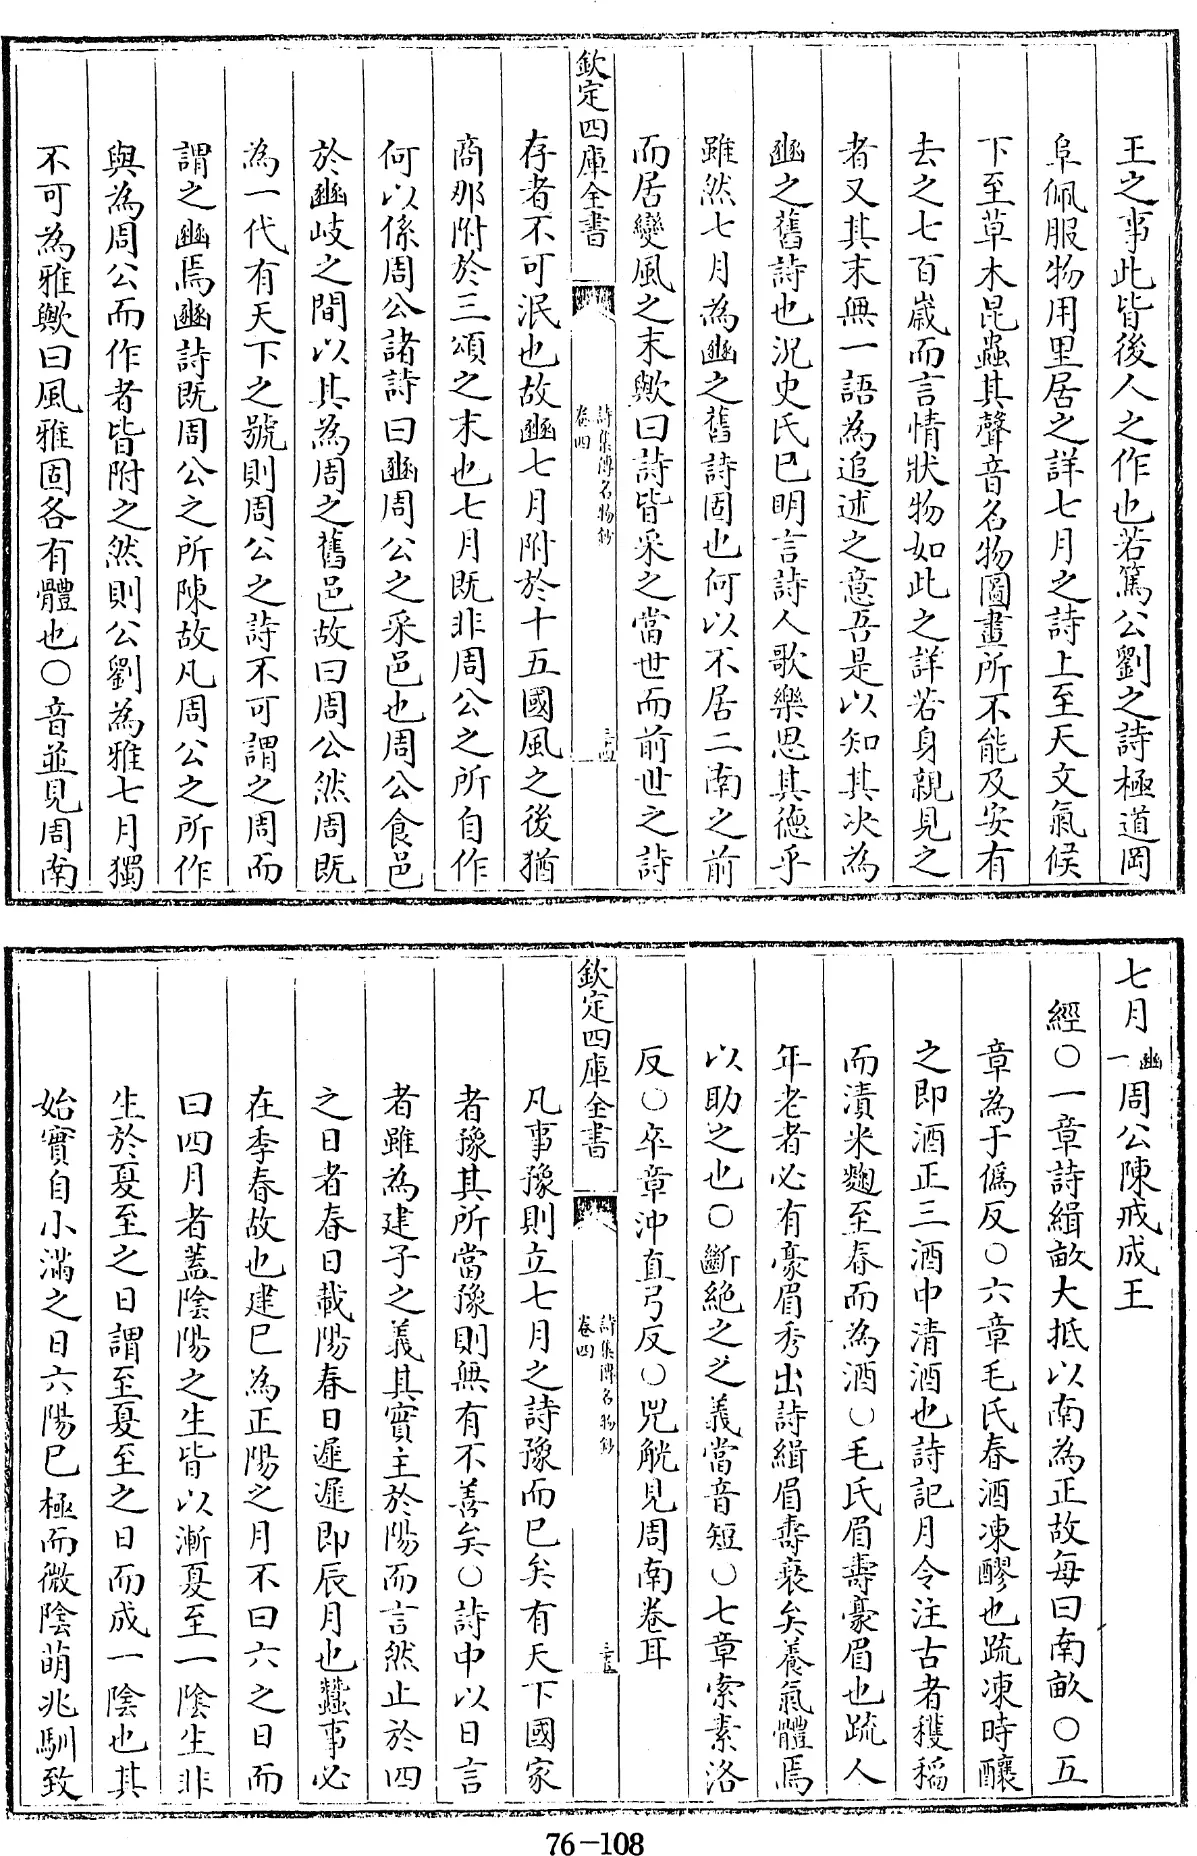 王之事此皆後人之作也若篤公劉之詩極道岡
阜佩服物用里居之詳七月之詩上至天文氣候
下至草木昆蟲其聲音名物圖畫所不能及安有
去之七百歲而言情狀物如此之詳若身親見之
者又其末無一語為追述之意吾是以知其決為
豳之舊詩也況史氏已明言詩人歌樂思其德乎
雖然七月為豳之舊詩固也何以不居二南之前
而居變風之末歟曰詩皆采之當世而前世之詩
欽定四庫全書
詩集傳名物鈔
卷四
三十四
存者不可泯也故豳七月附於十五國風之後猶
商那附於三頌之末也七月既非周公之所自作
何以係周公諸詩曰豳周公之采邑也周公食邑
於豳岐之間以其為周之舊邑故曰周公然周既
為一代有天下之號則周公之詩不可謂之周而
謂之豳焉豳詩既周公之所陳故凡周公之所作
與為周公而作者皆附之然則公劉為雅七月獨
不可為雅歟曰風雅固各有體也○音並見周南
七月豳一周公陳戒成王
經○一章詩緝畝大抵以南為正故每曰南畝○五
章為于僞反○六章毛氏春酒凍醪也疏凍時釀
之即酒正三酒中清酒也詩記月令注古者穫稻
而漬米麴至春而為酒○毛氏眉壽豪眉也疏人
年老者必有豪眉秀出詩緝眉壽衰矣養氣體焉
以助之也○斷絶之之義當音短○七章索素洛
反○卒章沖直弓反○兕觥見周南卷耳
欽定四庫全書
詩集傳名物鈔
卷四
三十五
凡事豫則立七月之詩豫而已矣有天下國家
者豫其所當豫則無有不善矣○詩中以日言
者雖為建子之義其實主於陽而言然止於四
之日者春日載陽春日遲遲即辰月也蠶事必
在季春故也建巳為正陽之月不曰六之日而
曰四月者蓋陰陽之生皆以漸夏至一陰生非
生於夏至之日謂至夏至之日而成一陰也其
始實自小滿之日六陽已極而微陰萌兆馴致
76-108